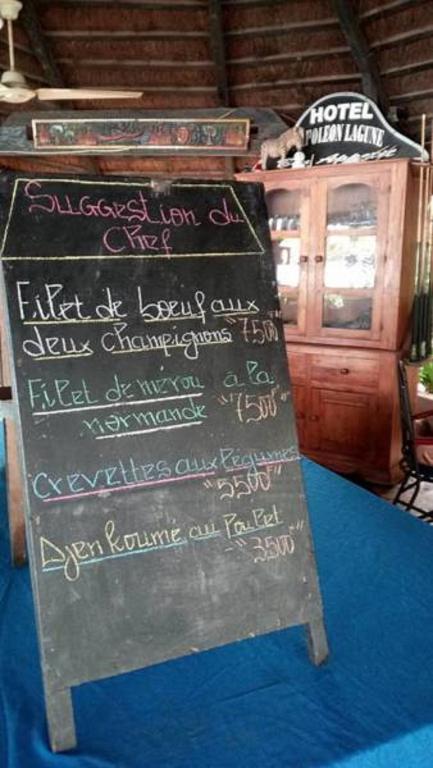 HOTEL
POLEON LAGUNE
Suggestion du
Chef
Filet de boeuf aux
deux champignons "7500"
Filet de mérou à la
normande "7500"
Crevettes aux légumes
"5500"
Djenkoumé au Poulet
"3500"